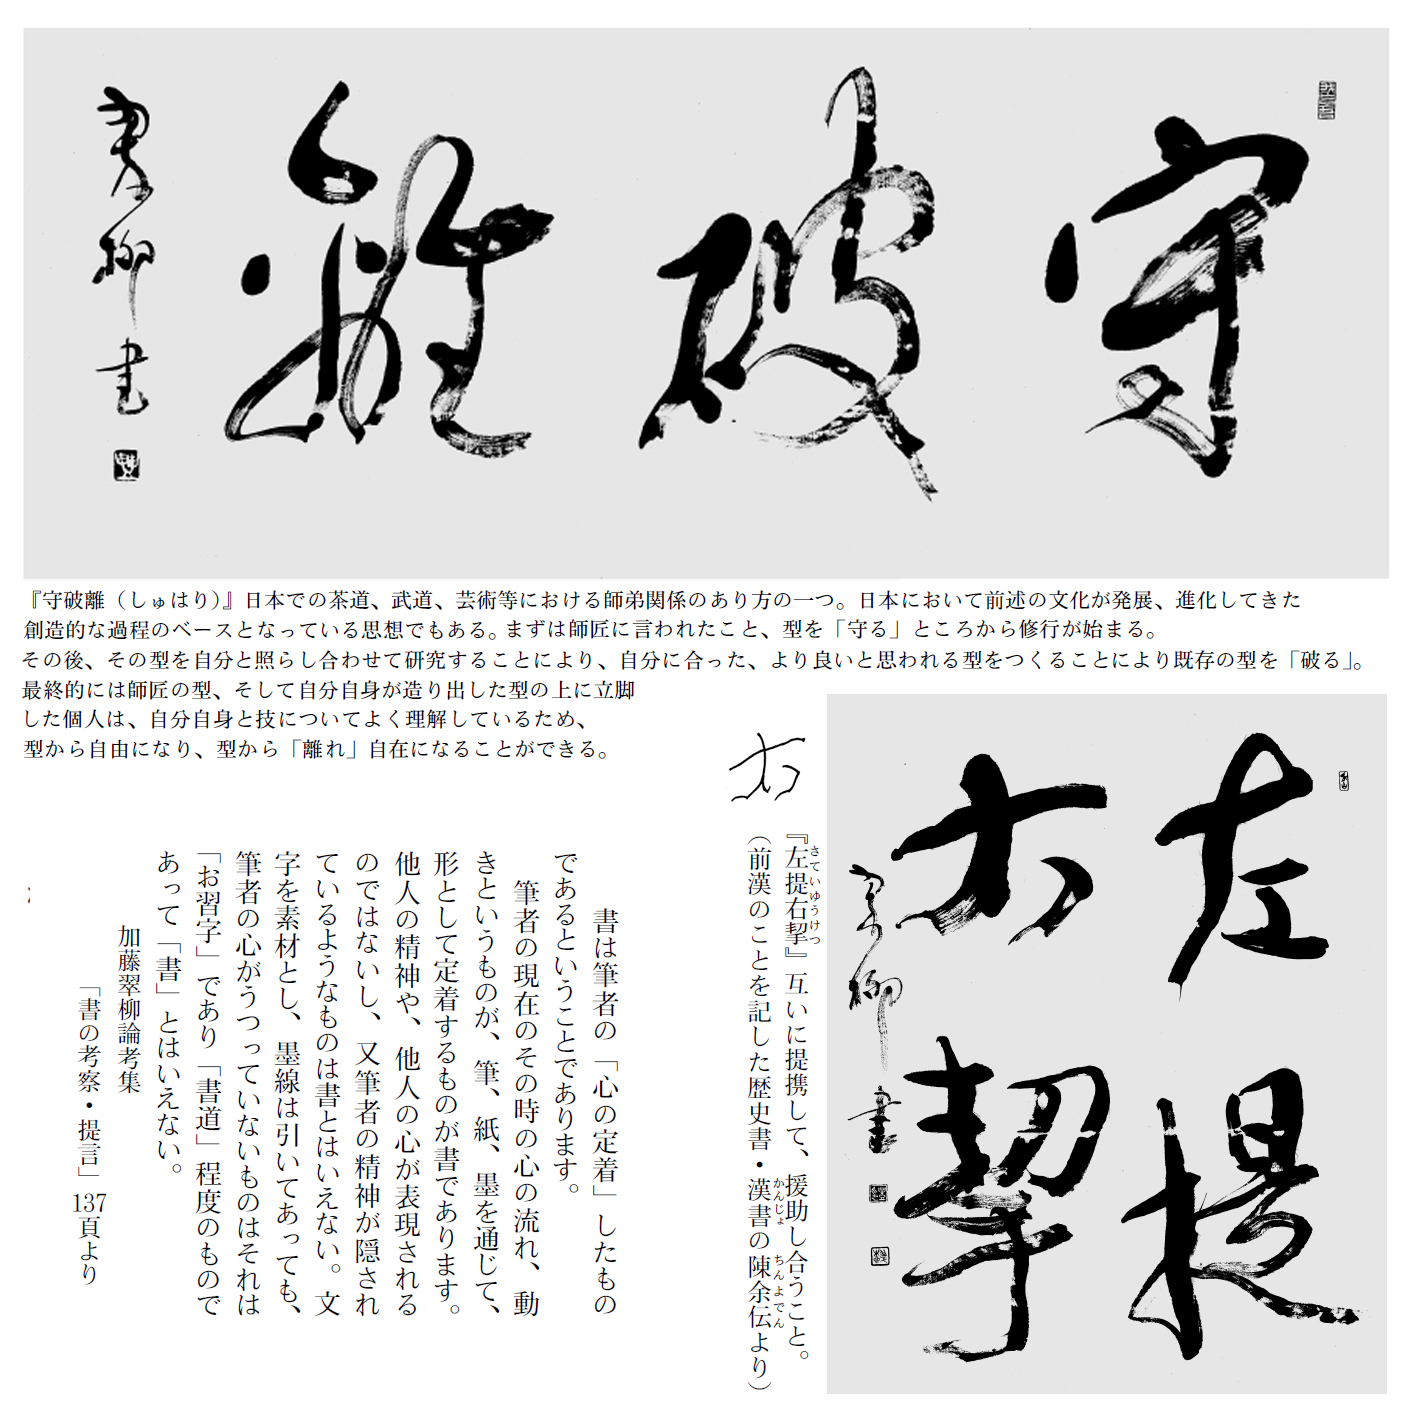 守破離
翠柳書
『守破離（しゅはり）』日本での茶道、武道、芸術等における師弟関係のあり方の一つ。日本において前述の文化が発展、進化してきた
創造的な過程のベースとなっている思想でもある。まずは師匠に言われたこと、型を「守る」ところから修行が始まる。
その後、その型を自分と照らし合わせて研究することにより、自分に合った、より良いと思われる型をつくることにより既存の型を「破る」。
最終的には師匠の型、そして自分自身が造り出した型の上に立脚
した個人は、自分自身と技についてよく理解しているため、
型から自由になり、型から「離れ」自在になることができる。
左提
右挈
翠柳書
右
『左提右挈』互いに提携して、援助し合うこと。
さていゆうけつ
（前漢のことを記した歴史書・漢書の陳余伝より）
かんじょ
ちんよでん
書は筆者の「心の定着」したもの
であるということであります。
筆者の現在のその時の心の流れ、動
きというものが、筆、紙、墨を通じて、
形として定着するものが書であります。
他人の精神や、他人の心が表現される
のではないし、又筆者の精神が隠され
ているようなものは書とはいえない。文
字を素材とし、墨線は引いてあっても、
筆者の心がうつっていないものはそれは
「お習字」であり「書道」程度のもので
あって「書」とはいえない。
加藤翠柳論考集
「書の考察・提言」137頁より